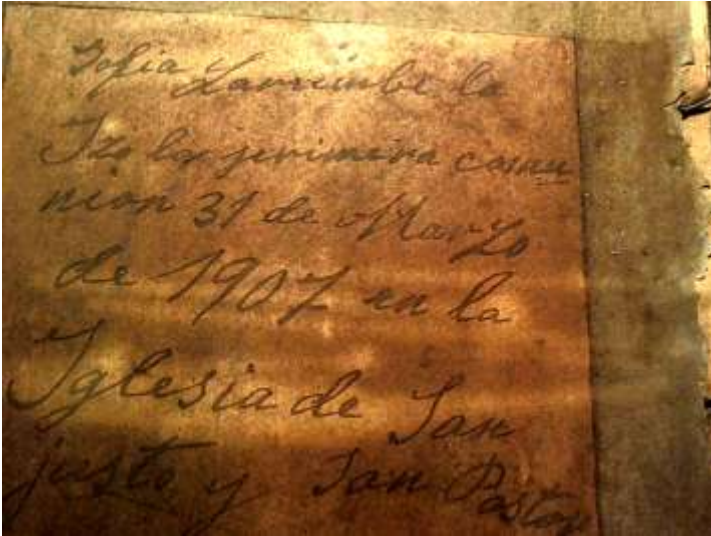 Sofia Larrimbe la
Izo la primera comu
nion 31 de Marzo
de 1907 en la
Iglesia de San
justo y San Pastor